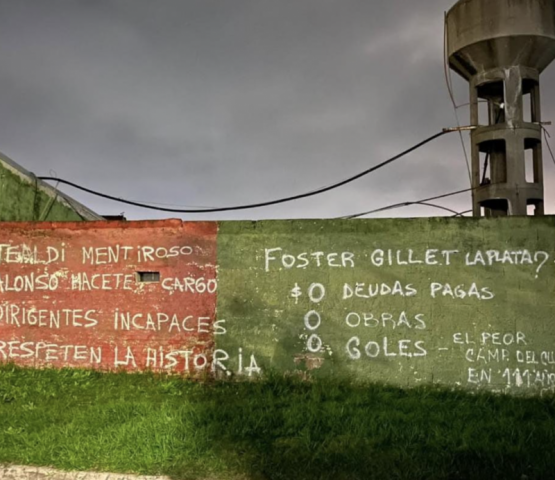 TEALDI MENTIROSO
ALONSO HACETE CARGO
DIRIGENTES INCAPACES
RESPETEN LA HISTORIA
FOSTER GILLET LAPLATA?
$0 DEUDAS PAGAS
0 OBRAS
0 GOLES - EL PEOR
CAMP. DEL
EN 111